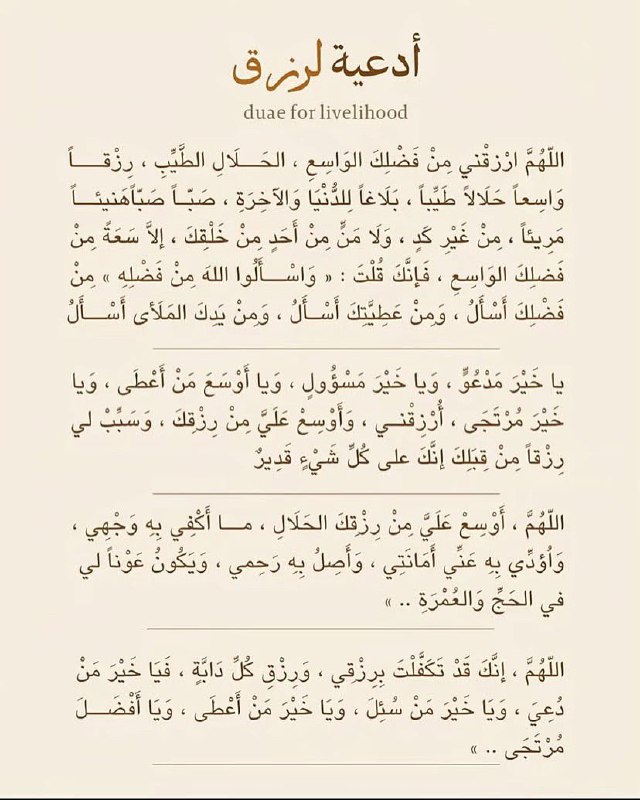 أدعية لرزق
duae for livelihood
اللّهُمَّ ارْزقْني مِنْ فَضْلِكَ الوَاسِعِ ، الحَلَالِ الطَّيِّبِ ، رِزْقاً
وَاسِعاً حَلَالاً طَيِّباً ، بَلَاغاً لِلدُّنْيَا وَالآخِرَةِ ، صَبّاً صَبّاًهَنيئاً
مَرِيئاً ، مِنْ غَيْرِ كَدٍ ، وَلَا مَنٍّ مِنْ أَحَدٍ مِنْ خَلْقِكَ ، إلاَّ سَعَةً مِنْ
فَضلِكَ الوَاسِعِ ، فَإنَّكَ قُلْتَ : « وَاسْأَلُوا اللهَ مِنْ فَضْلِهِ » مِنْ
فَضْلِكَ أَسْأَلُ ، وَمِنْ عَطِيَّتِكَ أَسْأَلُ ، وَمِنْ يَدِكَ المَلَأى أَسْأَلُ
يا خَيْرَ مَدْعُوٍّ ، وَيا خَيْرَ مَسْؤُولٍ ، وَيا أَوْسَعَ مَنْ أَعْطَى ، وَيا
خَيْرَ مُرْتَجَى ، أُرْزِقْنـي ، وَأَوْسِعْ عَلَيَّ مِنْ رِزْقِكَ ، وَسَبِّبْ لي
رِزْقاً مِنْ قِبَلِكَ إنَّكَ على كُلِّ شَيْءٍ قَدِيرٌ
اللّهُمَّ ، أَوْسِعْ عَلَيَّ مِنْ رِزِقِكَ الحَلَالِ ، مـا أَكْفِي بِهِ وَجْهِي ،
وَاُؤدِّي بِهِ عَنِّي أَمَانَتِي ، وَأَصِلُ بِهِ رَحِمي ، وَيَكُونُ عَوْناً لي
في الحَجِّ وَالعُمْرَةِ .. »
اللّهُمَّ ، إنَّكَ قَدْ تَكَفَّلْتَ بِرِزْقِي ، وَرِزْقِ كُلِّ دَابَّةٍ ، فَيَا خَيْرَ مَنْ
دُعِيَ ، وَيَا خَيْرَ مَنْ سُئِلَ ، وَيَا خَيْرَ مَنْ أَعْطَى ، وَيَا أَفْضَلَ
مُرْتَجَى .. »